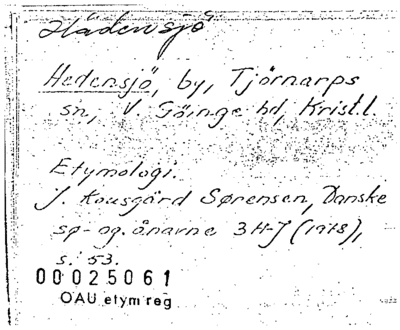 Hädensjö
Hedensjö, by, Tjörnarps
sn, V. Göinge hd, Krist.l.
Etymologi.
J. Kousgård Sørensen, Danske
sø- og ånavne 3 H-J (1978),
s. 53.
00025061
OAU etym reg